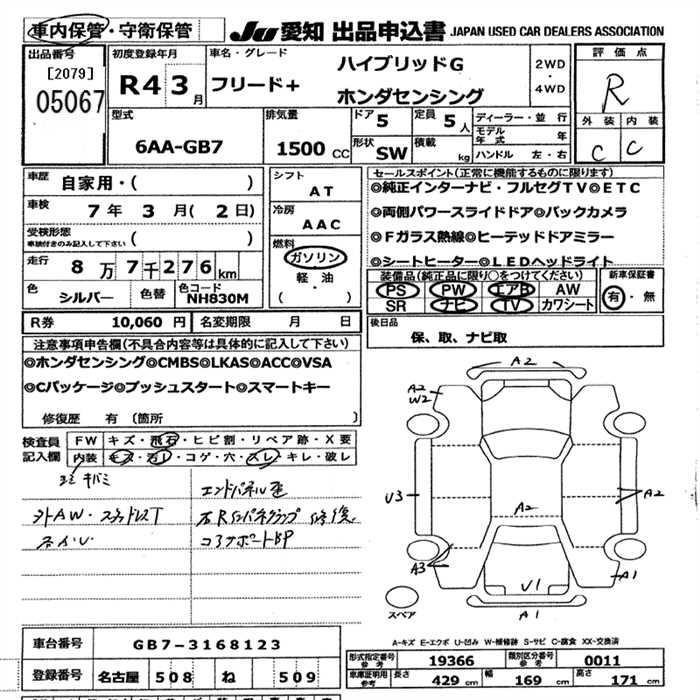 車内保管・守衛保管
JU 愛知 出品申込書 JAPAN USED CAR DEALERS ASSOCIATION
出品番号
[2079]
05067
初度登録年月
R4 3月
車名・グレード
フリード+ ハイブリッドG
ホンダセンシング
2WD
・
4WD
評価点
R
外装 内装
C C
型式
6AA-GB7
排気量
1500 CC
ドア 5
形状 SW
定員 5人
積載 kg
ディーラー・並行
モデル年式 年
ハンドル 左・右
車歴 自家用・( )
車検 7年 3月( 2日)
受検形態
車検付きのみ記入して下さい ( )
走行 8万7千276km
色 シルバー 色替 色コード NH830M
シフト
AT
冷房
AAC
燃料
ガソリン
軽・油
( )
セールスポイント(正常に機能するものに限ります)
◎純正インターナビ・フルセグTV◎ETC
◎両側パワースライドドア◎バックカメラ
◎Fガラス熱線◎ヒーテッドドアミラー
◎シートヒーター◎LEDヘッドライト
装備品(純正品に限り○をつけてください)
PS PW エアB AW
SR ナビ TV カワシート
新車保証書
有・無
R券 10,060円 名変期限 月 日
後日品
保、取、ナビ取
注意事項申告欄(不具合内容等は具体的に記入して下さい)
◎ホンダセンシング◎CMBS◎LKAS◎ACC◎VSA
◎Cパッケージ◎プッシュスタート◎スマートキー
修復歴 有 (箇所 )
検査員
記入欄
FW キズ・飛石・ヒビ割・リペア跡・X要
内装 キズ・汚レ・コゲ・穴・スレ・キレ・破レ
キバミ
エンドパネル歪
外AW・スタッドレスT
右Rインパネクランプ 修復
コアサポートBP
A2
A2
W2
U3
A2
A2
A3
A1
U1
A1
スペア
A-キズ E-エクボ U-凹み W-補修跡 S-サビ C-腐食 XX-交換済
車台番号 GB7-3168123
登録番号 名古屋 508 ね 509
形式指定番号
参考
19366
類別区分番号
参考
0011
車庫証明用
参考
長さ 429cm 幅 169cm 高さ 171cm